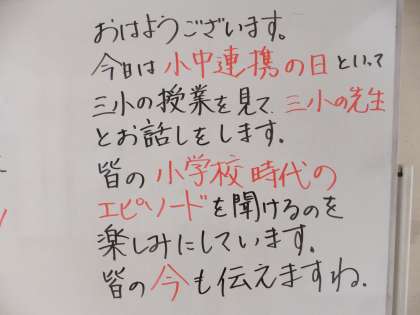 おはようございます。
今日は小中連携の日といって
三小の授業を見て、三小の先生
とお話しをします。
皆の小学校時代の
エピソードを聞けるのを
楽しみにしています。
皆の今も伝えますね。